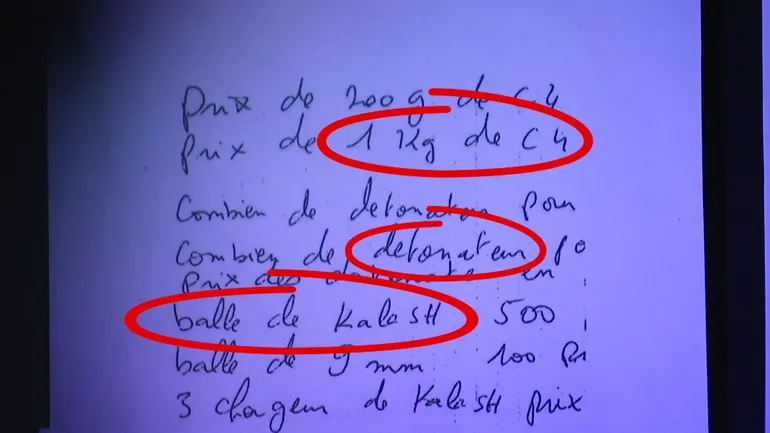 prix de 200 g de C4
prix de 1 Kg de C4
Combien de detonateur pour
Combien de detonateur po
prix des en
balle de KalasH 500
balle de 9 mm 100 Pr
3 chargeur de KalasH prix